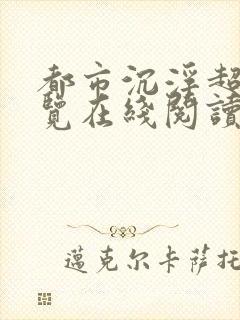 都市沉淫超
覽在綫閱讀
邁克尔卡薩托